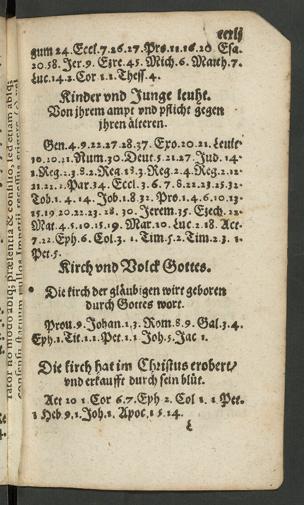 gum 24. Eccl. 7. 26. 27. Pro. 11. 16. 20 Esa.
20. 58. Jer. 9. Ezre. 45. Mich. 6. Matth. 7.
Luc. 14. 2. Cor 1 1. Thess. 4.
Kinder vnd Junge leuht.
Von ihrem ampt vnd pflicht gegen
ihren älteren.
Gen. 4. 9. 22. 27. 28. 37. Exo. 20. 21. Leuit
30. 20. 21. Num. 30. Deut. 5. 21. 27. Jud. 14.
1. Reg. 2. 3. 8. 2. Reg. 18. 3. Reg. 2. 4. Reg. 2. 12.
21. 21. 2. Par. 34. Eccl. 3. 6. 7. 8. 22. 23. 25. 32.
Tob. 1. 4. 14. Job. 1. 8. 32. Pro. 1. 4. 6. 10. 13.
15. 19 20. 22. 23. 28. 30. Jerem. 35. Ezech. 22.
Mat. 4. 5. 10. 15. 19. Mar. 10. Luc. 2. 18. Act.
7. 22. Eph. 6. Col. 3. 1. Tim. 5. 2. Tim. 2. 3. 1.
Pet. 5.
Kirch vnd Volck Gottes.
Die kirch der gläubigen wirt geboren
durch Gottes wort.
Prou. 9. Johan. 1. 3. Rom. 8. 9. Gal. 3. 4.
Eph. 1. Tit. 1. 1. Pet. 1. 1 Joh. 5. Jac 1.
Die kirch hat im Christus erobert/
vnd erkaufft durch sein blůt.
Act 20 1. Cor 6. 7. Eph 2. Col 1. 1 Pet.
1 Heb 9. 1. Joh. 1. Apoc. 1 5. 14.